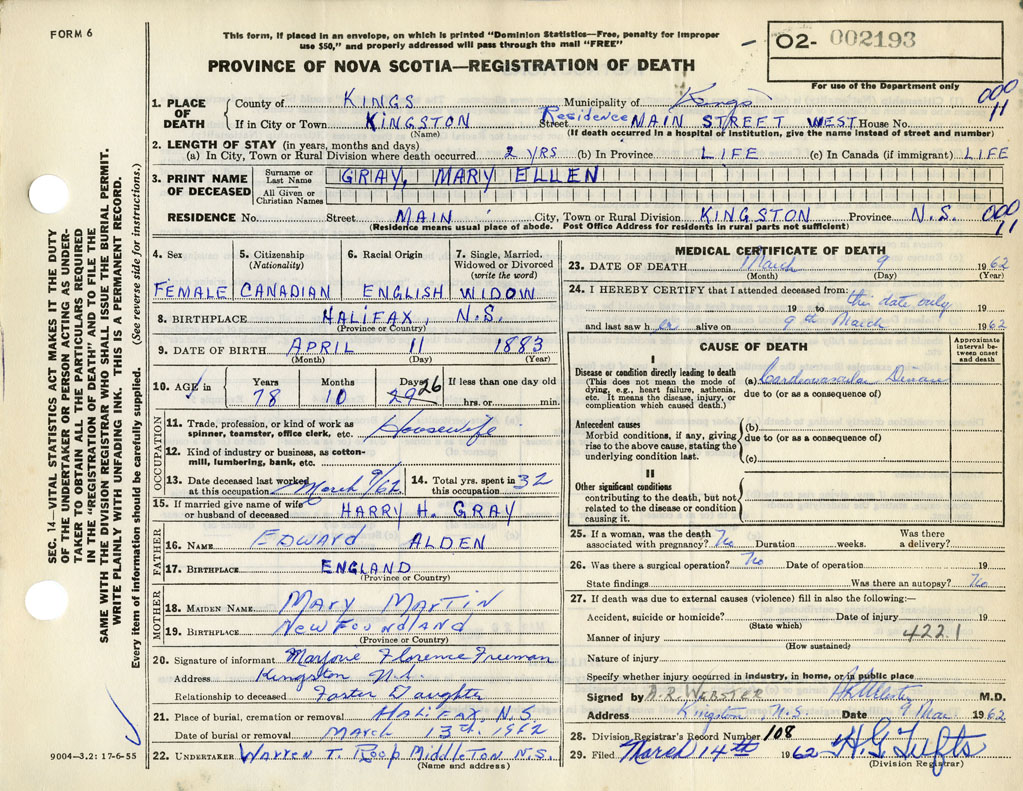 FORM 6
This form, if placed in an envelope, on which is printed "Dominion Statistics—Free, penalty for improper
use $50," and properly addressed will pass through the mail "FREE"
O2- 002193
PROVINCE OF NOVA SCOTIA—REGISTRATION OF DEATH
For use of the Department only
1. PLACE OF DEATH County of KINGS Municipality of Kings 000 11
If in City or Town KINGSTON (Name) Residence Street MAIN STREET WEST House No.
(If death occurred in a hospital or institution, give the name instead of street and number)
2. LENGTH OF STAY (in years, months and days)
(a) In City, Town or Rural Division where death occurred 2 YRS (b) In Province LIFE (c) In Canada (if immigrant) LIFE
3. PRINT NAME OF DECEASED Surname or Last Name GRAY, MARY ELLEN
All Given or Christian Names
RESIDENCE No. Street MAIN City, Town or Rural Division KINGSTON Province N.S. 000 11
(Residence means usual place of abode. Post Office Address for residents in rural parts not sufficient)
4. Sex FEMALE
5. Citizenship (Nationality) CANADIAN
6. Racial Origin ENGLISH
7. Single, Married, Widowed or Divorced (write the word) WIDOW
8. BIRTHPLACE HALIFAX, N.S.
(Province or Country)
9. DATE OF BIRTH APRIL 11 1883
(Month) (Day) (Year)
10. AGE in Years 78 Months 10 Days 29 26 If less than one day old
hrs. or min.
OCCUPATION
11. Trade, profession, or kind of work as
spinner, teamster, office clerk, etc. Housewife
12. Kind of industry or business, as cotton-
mill, lumbering, bank, etc.
13. Date deceased last worked at this occupation March 9/62 14. Total yrs. spent in this occupation 32
15. If married give name of wife or husband of deceased HARRY H. GRAY
FATHER
16. NAME EDWARD ALDEN
17. BIRTHPLACE ENGLAND
(Province or Country)
MOTHER
18. MAIDEN NAME MARY MARTIN
19. BIRTHPLACE NEWFOUNDLAND
(Province or Country)
20. Signature of informant Marjorie Florence Freeman
Address Kingston N.S.
Relationship to deceased Foster Daughter
21. Place of burial, cremation or removal HALIFAX, N.S.
Date of burial or removal MARCH 13th 1962
22. UNDERTAKER WARREN T. ROOP MIDDLETON N.S.
(Name and address)
MEDICAL CERTIFICATE OF DEATH
23. DATE OF DEATH March 9 1962
(Month) (Day) (Year)
24. I HEREBY CERTIFY that I attended deceased from:
19 to this date only 19
and last saw her alive on 9th March 1962
CAUSE OF DEATH
Approximate interval between onset and death
I
Disease or condition directly leading to death
(This does not mean the mode of
dying, e.g., heart failure, asthenia,
etc. It means the disease, injury, or
complication which caused death.)
(a) Cardiovascular Disease
due to (or as a consequence of)
Antecedent causes
Morbid conditions, if any, giving
rise to the above cause, stating the
underlying condition last.
(b)
due to (or as a consequence of)
(c)
II
Other significant conditions
contributing to the death, but not
related to the disease or condition
causing it.
25. If a woman, was the death Was there
associated with pregnancy? No Duration weeks. a delivery?
26. Was there a surgical operation? No Date of operation 19
State findings Was there an autopsy? No
27. If death was due to external causes (violence) fill in also the following:—
Accident, suicide or homicide? Date of injury 19
(State which)
Manner of injury 422.1
(How sustained)
Nature of injury
Specify whether injury occurred in industry, in home, or in public place
Signed by A.R. WEBSTER M.D.
Address Kingston, N.S. Date 9 Mar 1962
28. Division Registrar's Record Number 108
29. Filed March 14th 1962 H G Tufts
(Division Registrar)
SEC. 14—VITAL STATISTICS ACT MAKES IT THE DUTY
OF THE UNDERTAKER OR PERSON ACTING AS UNDER-
TAKER TO OBTAIN ALL THE PARTICULARS REQUIRED
IN THE "REGISTRATION OF DEATH" AND TO FILE THE
SAME WITH THE DIVISION REGISTRAR WHO SHALL ISSUE THE BURIAL PERMIT.
WRITE PLAINLY WITH UNFADING INK. THIS IS A PERMANENT RECORD.
Every item of information should be carefully supplied. (See reverse side for instructions.)
9004—3.2: 17-6-55